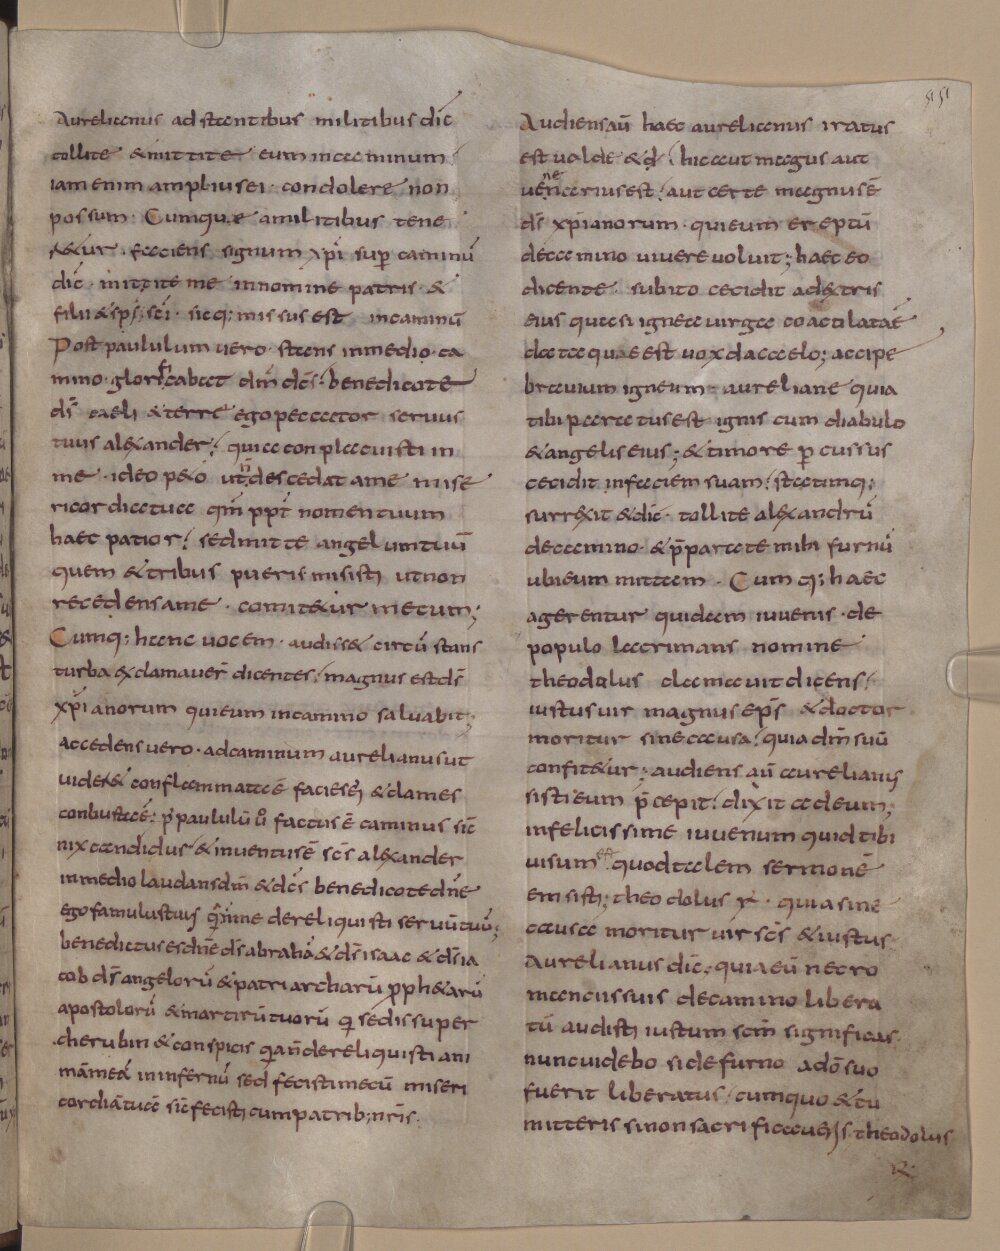 55
Aurelianus adstantibus militibus dic̄
tollite & mittite eum in caminum
iam enim amplius ei condolere non
possum. Cumque a militibus tene
r&ur. faciens signum xp̄i sup̄ caminū
dic̄. mittite me in nomine patris &
filii & sp̄s sc̄i. sicq; missus est in caminū
Post paululum vero. stans in medio ca
mino. glorificabat dm̄ dc̄s. benedico te
ds̄ caeli & terre ego peccator servus
tuus alexander. qui a conplacuisti in
me. ideo p&o ut n̄ descedat a me mise
ricordia tua qm̄ ppt̄ nomen tuum
haec patior. sed mitte angelum tuū
quem & tribus pueris misisti ut non
recedens a me. comit&ur mecum;
Cumq; hanc vocem. audiss& circū stans
turba exclamaver̄ dicentes. magnus est ds̄
xp̄ianorum qui eum in camino salvabit;
accedens vero. ad caminum aurelianus ut
vider& conflammata ē facies ei & dames
conbusta ē. p̄ paululū ū factus ē caminus sic̄
nix candidus & inventus ē sc̄s alexander
in medio laudans dm̄ & dc̄s benedico te dn̄e
ego famulus tuus qm̄ n̄ me dereliquisti servū tuū;
benedictus es dn̄e ds̄ abrahā & ds̄ isaac & ds̄ ia
cob ds̄ angelorū & patriarcharū proph&arū
apostolorū & martirū tuorū qi sedis super
cherubin & conspicis q̄ an̄ dereliquisti ani
mā meā in infernū sed fecisti mecū miseri
cordiā tuā sic̄ fecisti cum patrib; nr̄is.
Audiens aū haec aurelianus iratus
est valde & d̄. hic aut magus aut
venenarius est. aut certe magnus ē
ds̄ xp̄ianorum. qui eum ereptū
de camino vivere voluit; haec eo
dicente. subito cecidit a dextris
eius quasi ignea virga coactilata ē
data quae est vox da caelo; accipe
bravium igneum. aureliane quia
tibi paratus est ignis cum diabulo
& angelis eius; & timore pcussus
cecidit in faciem suam. statimq;
surrexit & dic̄. tollite alexandrū
de camino. & p̄parate mihi furnū
ubi eum mittam. Cumq; haec
agerentur quidam iuvenis. de
populo lacrimans nomine
theodolus clamavit dicens.
iustus vir magnus ep̄s & doctor
moritur sine causa. quia dm̄ suū
confit&ur; audiens aū aurelianus
sisti eum p̄cepit. dixit ad eum;
infelicissime iuvenum quid tibi
visum est quod talem sermonē
emisisti; theodolus R̄. quia sine
causa moritur vir sc̄s & iustus
Aurelianus dic̄. quia eū necro
mantius suis de camino libera
tū audisti iustum scm̄ significas.
nunc videbo si de furno a dō suo
fuerit liberatus. cum quo & tu
mitteris si non sacrificaveris. theodolus
R.